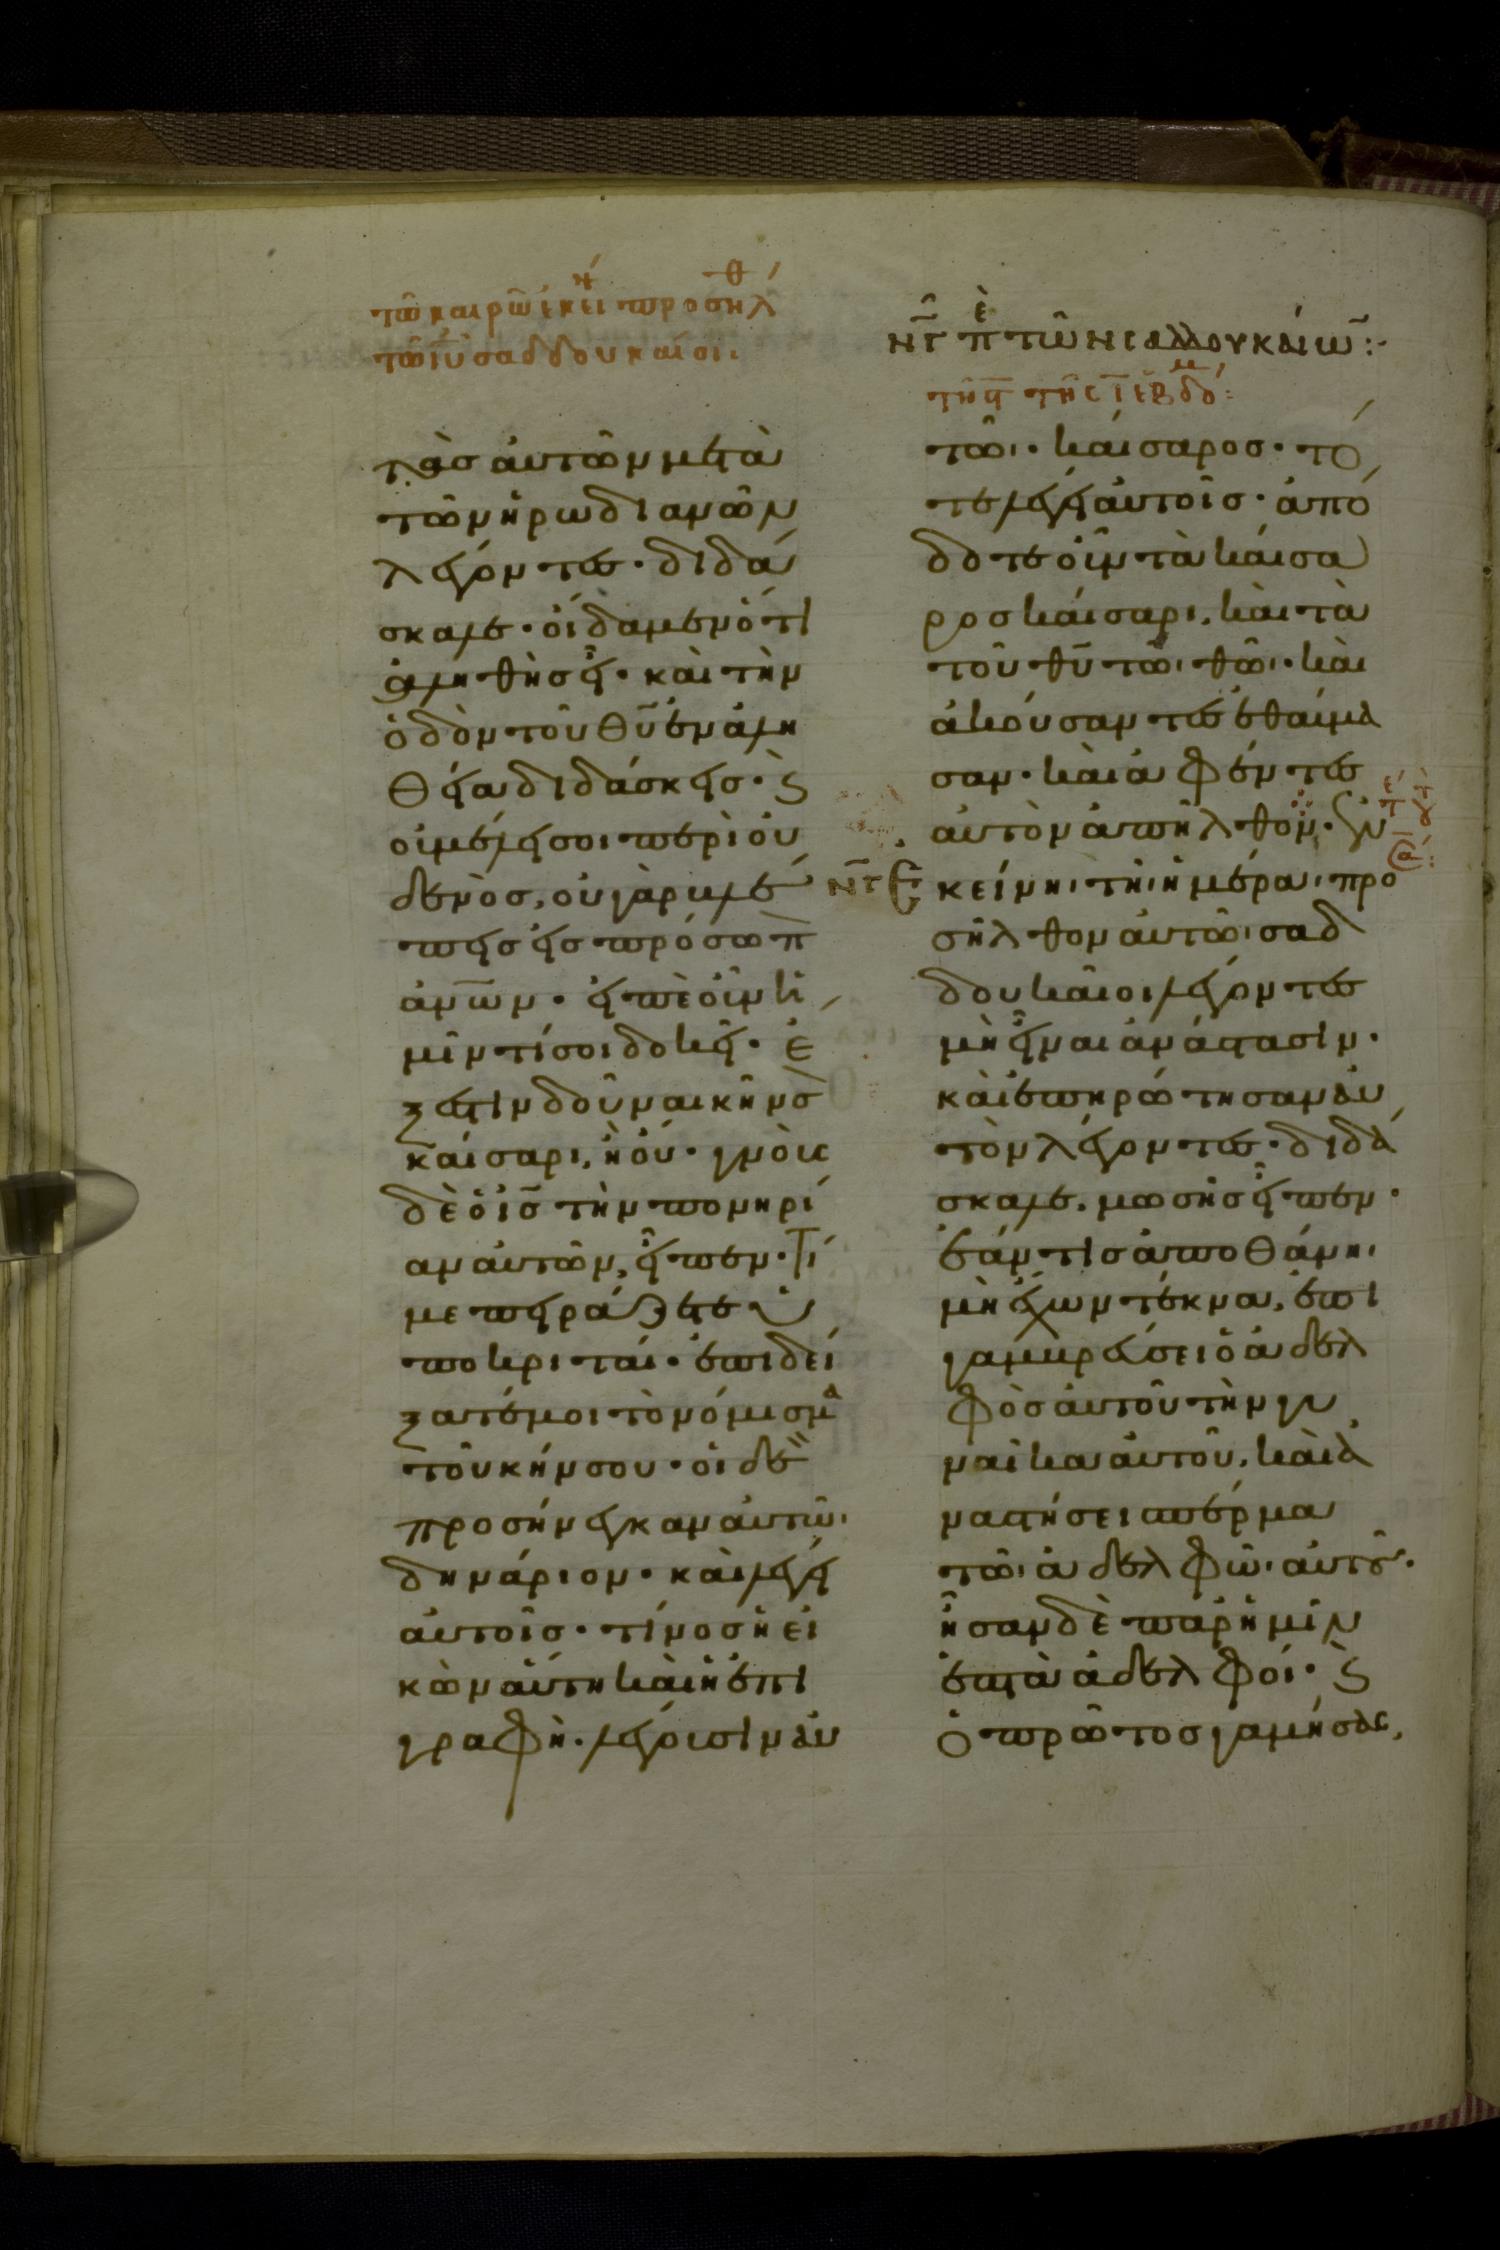 τῶ καιρῶ ἐκει προσηλθ
τῶ ιυ σαδδουκαίοι.
τὰσ ἀυτῶν μετὰ
τῶν ἡρωδιανῶν
λέγοντεσ· διδά
σκαλε· οἴδαμεν ὅτι
ἀληθὴσ εἶ· καὶ τὴν
ὁδὸν τοῦ θῦ ἐν ἀλη
θεία διδάσκεισ· ϗ
οὐ μέλει σοι περὶ οὐ
δενὸσ, οὐ γὰρ βλέ
πεισ εἰσ πρόσωπ
ἀνων· εἰπὲ οὖν ἡ
μῖν τί σοι δοκεῖ· ἔ
ξεστιν δοῦναι κῆνσ
καίσαρι, ἢ οὔ· γνοὺς
δὲ ὁ ισ̄ τὴν πονηρί
αν ἀυτῶν, εἶπεν· τί
με πειράζετε ὑ
ποκριταί· ἐπιδεί
ξατέ μοι τὸ νόμισμα
τοῦ κήνσου· οἱ δὲ
προσήνεγκαν ἀυτῶι
δηνάριον· καὶ λέγει
ἀυτοῖσ· τίνοσ ἡ εἰ
κὼν ἅυτη καὶ ἡ ἐπι
γραφὴ· λέγουσιν ἀυ
ΝΓ πε τῶν σαδδουκαίων:
τῆ τῆς ἑβδο:
τῶι· καίσαροσ· τό
τε λέγει ἀυτοῖσ· ἀπό
δοτε οὖν τὰ καίσα
ροσ καίσαρι, καὶ τὰ
τοῦ θῦ τῶι θῶι· καὶ
ἀκούσαντεσ ἐθαύμα
σαν· καὶ ἀφέντεσ
ἀυτὸν ἀπῆλθον· Ἐν
ΝΓ ἐκείνηι τῆι ἡμέραι προ
σῆλθον ἀυτῶι σαδ
δουκαῖοι λέγοντεσ
μὴ εἶναι ἀνάστασιν·
καὶ ἐπηρώτησαν ἀυ
τὸν λέγοντεσ· διδά
σκαλε, μωσῆσ εἶπεν·
ἐάν τισ ἀποθάνηι
μὴ ἔχων τέκνα, ἐπι
γαμβρεύσει ὁ ἀδελ
φὸσ ἀυτοῦ τὴν γυ
ναῖκα ἀυτοῦ, καὶ ἀ
ναστήσει σπέρμα
τῶι ἀδελφῶι ἀυτοῦ·
ἦσαν δὲ παρ' ἡμῖν
ἑπτὰ ἀδελφοί· ϗ
ὁ πρῶτοσ γαμήσας,